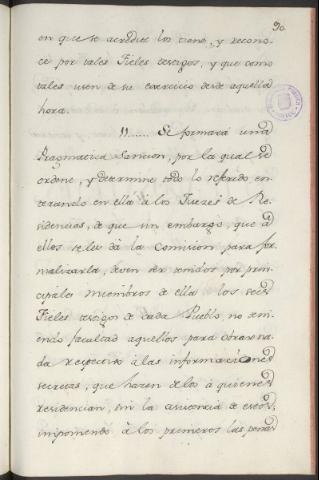 90
en que se acredite los tiene, y recono-
ce por tales Fieles testigos, y que como
tales usen de su exercicio desde aquella
hora.
11...... Se formará una
Pragmatica Sancion, por la qual se
ordene, y determine todo lo referido en-
terando en ella á los Jueces de Re-
sidencias, de que sin embargo, que á
ellos se les dá la Comision para for-
malizarla, deven ser tenidos por prin-
cipales miembros de ella los
Fieles testigos de cada Pueblo no teni-
endo facultad aquellos para obrar na-
da respectivo á las informaciones
secretas, que hazen de los á quienes
residencian, sin la asistencia de estos,
imponiendo á los primeros las penas